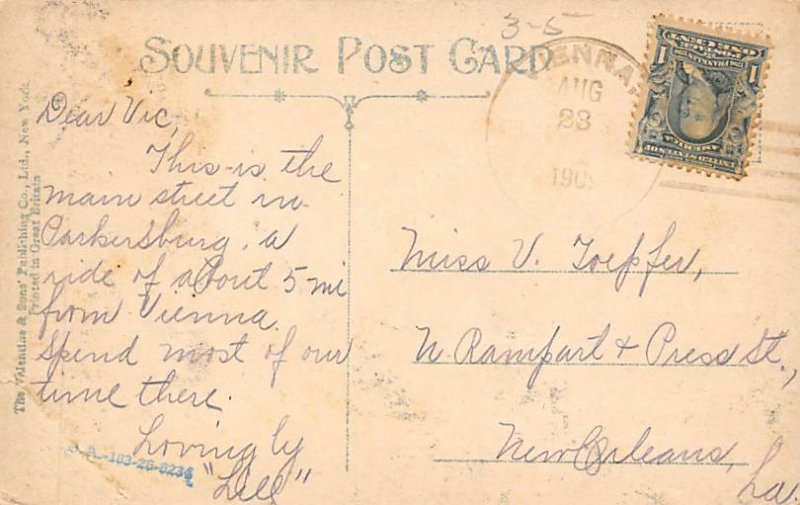 3-5
SOUVENIR POST CARD
VIENNA
AUG
23
190
Dear Vic,
This is the
main street in
Parkersburg, a
ride of about 5 mi
from Vienna.
Spend most of our
time there.
Lovingly
"Lill"
Miss V. Toepfer,
N. Rampart + Press St.,
New Orleans,
La.
The Valentine & Sons' Publishing Co., Ltd., New York
Printed in Great Britain
A.-103-26-6234